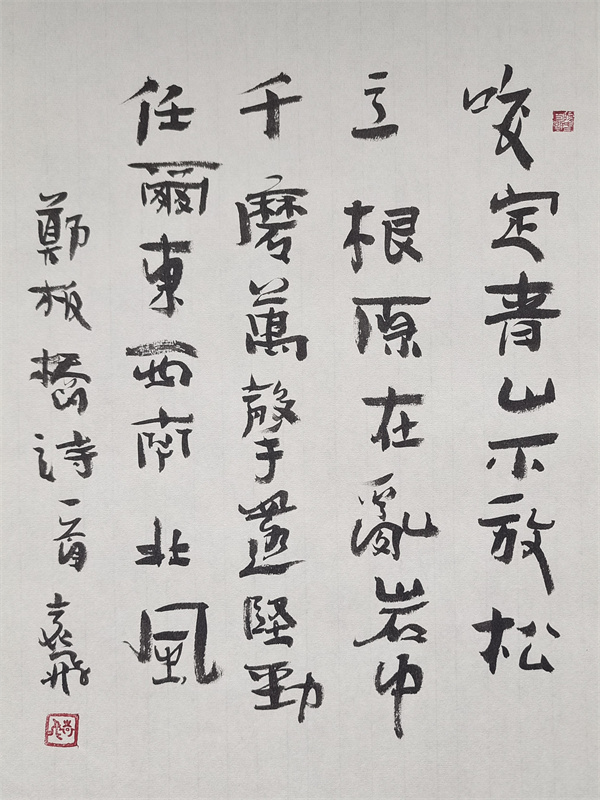 咬定青山不放松
立根原在亂岩中
千磨萬擊還堅勁
任爾東西南北風
鄭板橋詩一首 袁飛